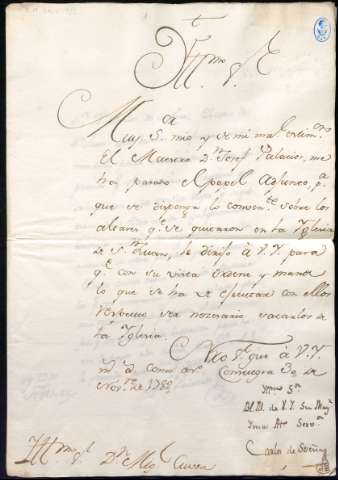 Yll.mo S.r
Muy S.r mio y de mi mal estim.on
El Maestro D.n Josef Palacios, me
ha pasado el papel adjunto, p.a
que se disponga lo conven.te sobre los
altares q.e se quitaron en la Yglesia
de S.n Juan, le dirijo à V.Y. para
q.e con su vista ordene y mande
lo que se ha de ejecutar con ellos
ser necesario sacarlos de
la Yglesia.
Nro S.r gue à V.Y.
m.s a.s como des.o Consuegra 30 de
Nov.re de 1789
Yllmo S.or
Bl. M. de V.Y. Su May.r
Carlos de
Yll.mo S.r D.n Mig.l